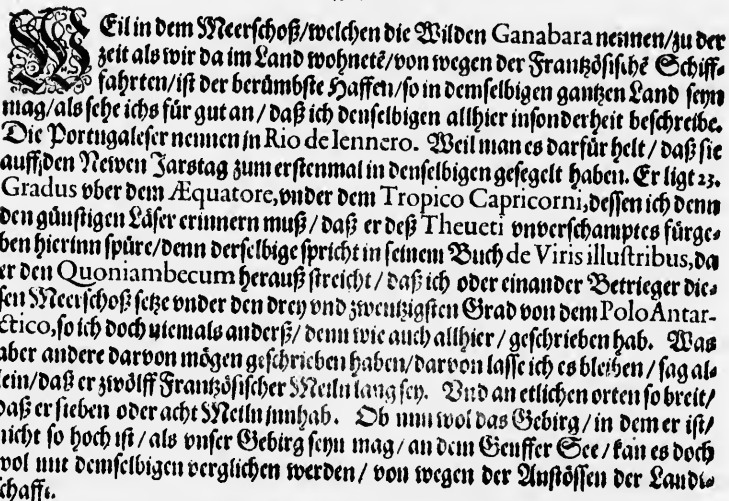 WEil in dem Meerschoß/welchen die Wilden Ganabara nennen/zu der
zeit als wir da im Land wohnetẽ/von wegen der Frantzösischẽ Schiff-
fahrten/ist der berümbste Haffen/so in demselbigen gantzen Land seyn
mag/als sehe ichs für gut an/daß ich denselbigen allhier insonderheit beschreibe.
Die Portugaleser nennen jn Rio de Iennero. Weil man es darfür helt/daß sie
auff den Newen Jarstag zum erstenmal in denselbigen gesegelt haben. Er ligt 23.
Gradus vber dem Æquatore, vnder dem Tropico Capricorni, dessen ich denn
den günstigen Läser erinnern muß/daß er deß Theueti vnverschamptes fürge-
ben hierinn spüre/denn derselbige spricht in seinem Buch de Viris illustribus, da
er den Quoniambecum herauß streicht/daß ich oder einander Betrieger die-
sen Meerschoß setze vnder den drey vnd zwentzigsten Grad von dem Polo Antar-
ctico, so ich doch niemals anderß/denn wie auch allhier/geschrieben hab. Was
aber andere darvon mögen geschrieben haben/darvon lasse ich es bleiben/sag al-
lein/daß er zwölff Frantzösischer Meiln lang sey. Vnd an etlichen orten so breit/
daß er sieben oder acht Meiln innhab. Ob nun wol das Gebirg/in dem er ist/
nicht so hoch ist/als vnser Gebirg seyn mag/an dem Genffer See/kan es doch
wol mit demselbigen verglichen werden/von wegen der Anstössen der Landt-
schafft.